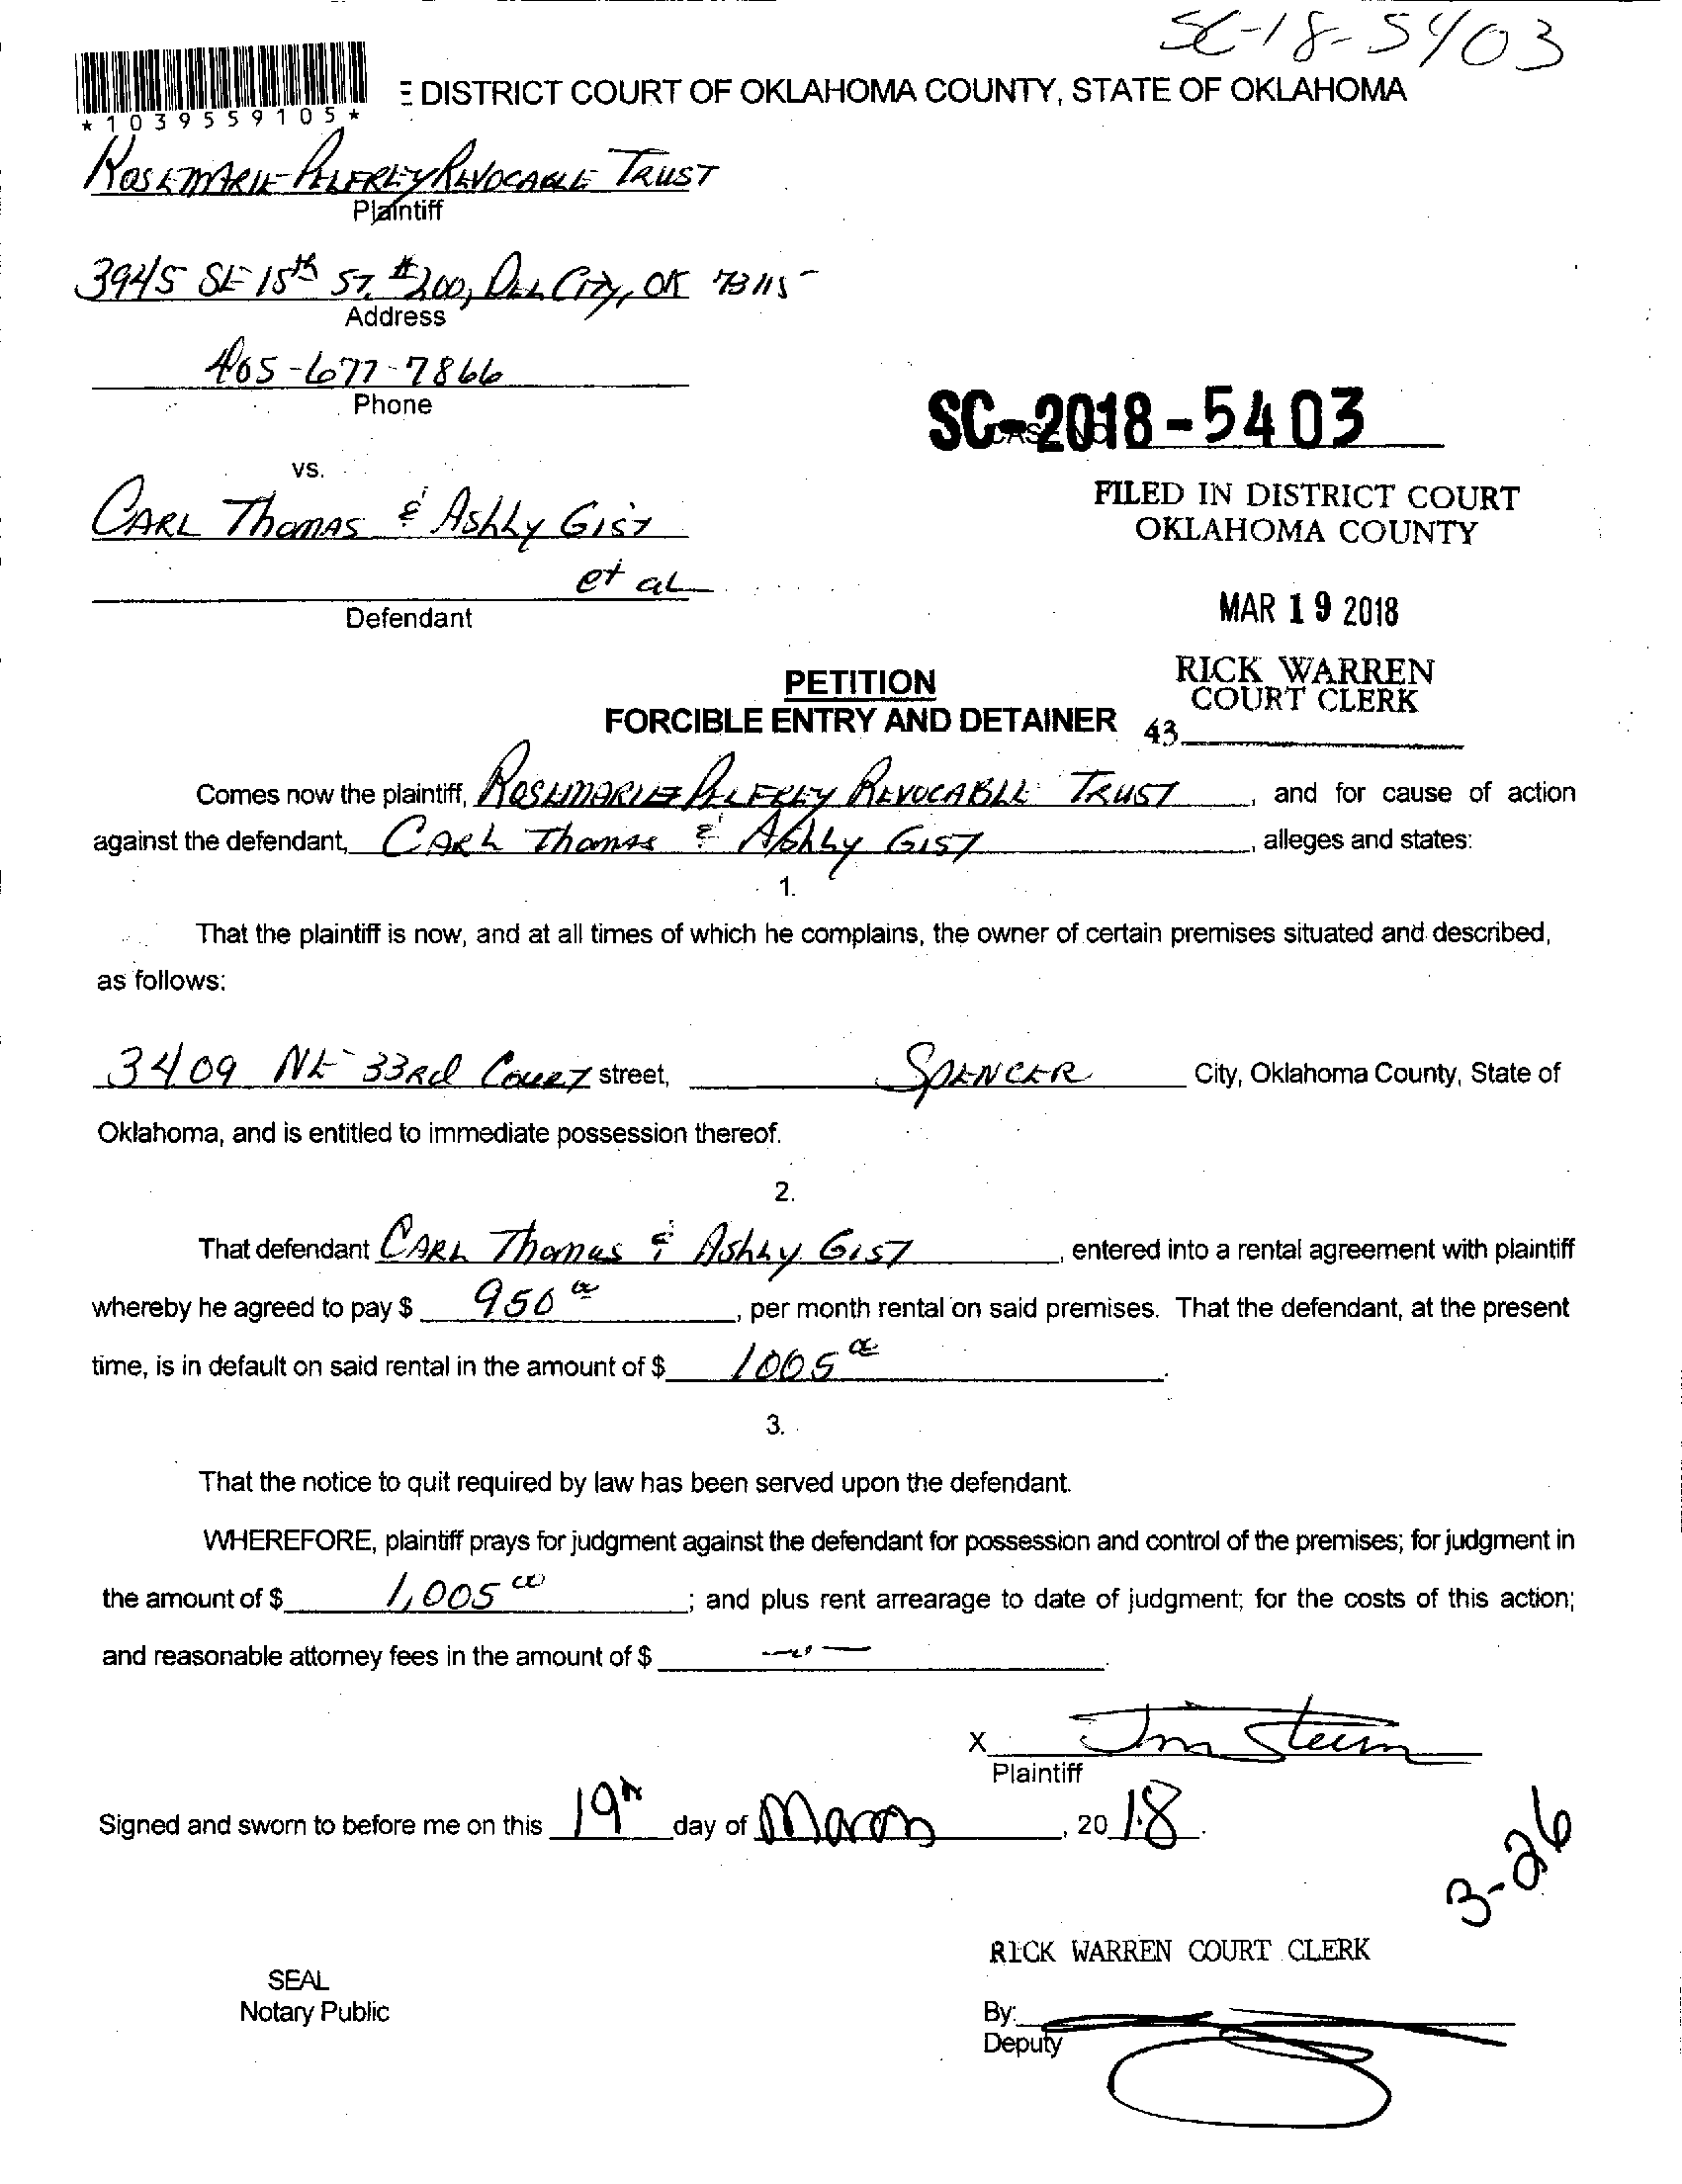 SC-18-5403
*1039559105*
E DISTRICT COURT OF OKLAHOMA COUNTY, STATE OF OKLAHOMA
ROSEMARIE PELFREY REVOCABLE TRUST
Plaintiff
3945 SE 15th ST. #200, DEL CITY, OK 73115
Address
405-677-7866
Phone
SC-2018-5403
vs.
CARL Thomas & Ashly GIST
et al
Defendant
FILED IN DISTRICT COURT
OKLAHOMA COUNTY
MAR 19 2018
RICK WARREN
COURT CLERK
43
PETITION
FORCIBLE ENTRY AND DETAINER
Comes now the plaintiff, ROSEMARIE PELFREY REVOCABLE TRUST, and for cause of action
against the defendant, CARL Thomas & Ashly GIST, alleges and states:
1.
That the plaintiff is now, and at all times of which he complains, the owner of certain premises situated and described,
as follows:
3409 NE 33Rd COURT street, SPENCER City, Oklahoma County, State of
Oklahoma, and is entitled to immediate possession thereof.
2.
That defendant CARL Thomas & Ashly GIST, entered into a rental agreement with plaintiff
whereby he agreed to pay $ 950 00, per month rental on said premises. That the defendant, at the present
time, is in default on said rental in the amount of $ 1005 00.
3.
That the notice to quit required by law has been served upon the defendant.
WHEREFORE, plaintiff prays for judgment against the defendant for possession and control of the premises; for judgment in
the amount of $ 1,005 00; and plus rent arrearage to date of judgment; for the costs of this action;
and reasonable attorney fees in the amount of $
X
Plaintiff
Signed and sworn to before me on this 19th day of March, 2018.
3-26
RICK WARREN COURT CLERK
SEAL
Notary Public
By:
Deputy